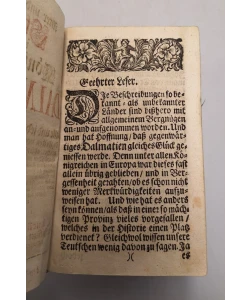 Geehrter Leser.
Die Beschreibungen so be-
kannt- als unbekannter
Länder sind bißhero mit
allgemeinem Vergnügen
an- und aufgenommen worden. Und
man hat Hoffnung, daß gegenwärti-
ges Dalmatien gleiches Glück ge-
niessen werde. Denn unter allen Kö-
nigreichen in Europa war dieses fast
allein übrig geblieben, und in Ver-
gessenheit gerahten, ob es schon nicht
weniger Merckwürdigkeiten aufzu-
weisen hat. Und wie hat es anders
seyn können, als daß in einer so mäch-
tigen Provinz vieles vorgefallen,
welches in der Historie einen Platz
verdienet? Gleichwol wissen unsere
Teutschen wenig davon zu sagen. Ja
)( es